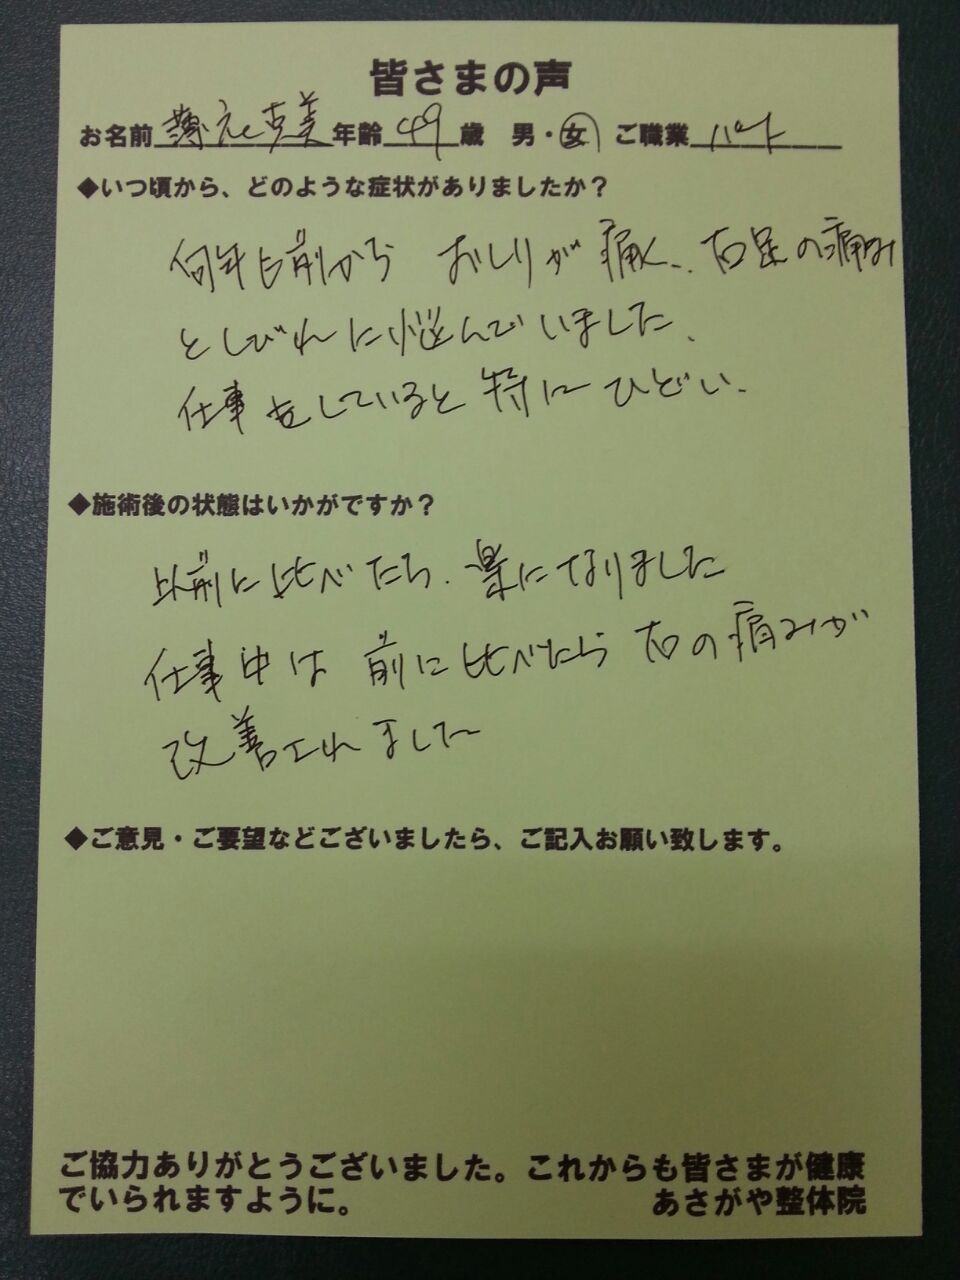 皆さまの声
お名前 克美 年齢 49 歳 男・女 ご職業 パート
◆いつ頃から、どのような症状がありましたか?
何年も前から おしりが痛く、右足の痛み
としびれに悩んでいました、
仕事をしていると特にひどい、
◆施術後の状態はいかがですか?
以前に比べたら、楽になりました
仕事中は 前に比べたら 右の痛みが
改善されました
◆ご意見・ご要望などございましたら、ご記入お願い致します。
ご協力ありがとうございました。これからも皆さまが健康
でいられますように。 あさがや整体院